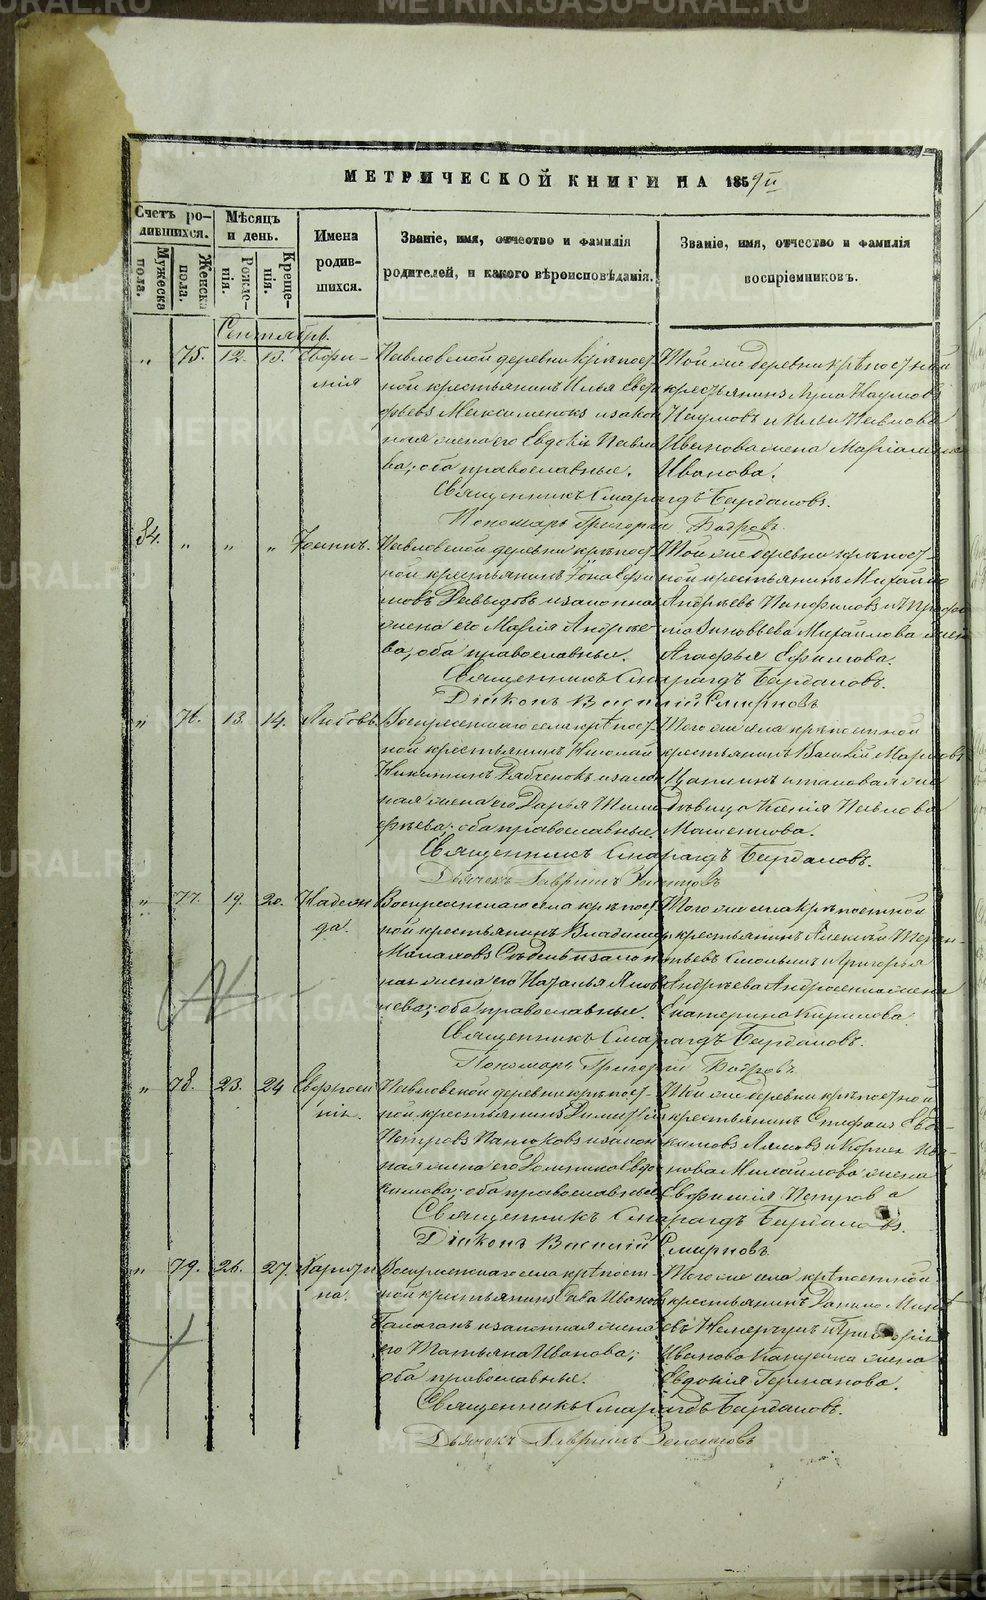 МЕТРИЧЕСКОЙ КНИГИ НА 1859й
Счетъ родившихся.
Мѣсяцъ и день.
Имена родившихся.
Званіе, имя, отчество и фамилія родителей, и какого вѣроисповѣданія.
Званіе, имя, отчество и фамилія воспріемниковъ.
Мужеска пола.
Женска пола.
Рожденія.
Крещенія.
Сентябрь.
" 75. 12. 13. Евфи-
мія
Павловской деревни крѣпост-
ной крестьянинъ Илья
Максименокъ и закон
ная жена его Евдокія Павло
ва; оба православные.
Той же деревни крѣпостной
крестьянинъ Наумовъ
Наумовъ и Ильи Павлова
Иванова жена
Иванова.
Священникъ Смарагдъ Бардаловъ.
Пономарь Григорій Бодровъ.
84. " " " Іоаннъ.
Павловской деревни крѣпост
ной крестьянинъ Іона Ефи
мовъ Давыдовъ и законная
жена его Марія Андрее-
ва, оба православные.
Той же деревни крѣпост-
ной крестьянинъ Михайло
Андреевъ Панфиловъ и
Зиновьева Михайлова жена
Агафья Ефимова.
Священникъ Смарагдъ Бардаловъ.
Діаконъ Василій Смирновъ
" 76. 13. 14. Любовь
Воскресенскаго села крѣпост
ной крестьянинъ Николай
Никитинъ Рябченокъ и закон
ная жена его Дарья Тимо
феева; оба православные.
Того же села крѣпостной
крестьянинъ Василій
Цаплинъ и таковая же
дѣвица Ксенія Павлова
Священникъ Смарагдъ Бардаловъ.
Дьячекъ Гавріилъ
" 77. 19. 20. Надеж
да.
Воскресенскаго села крѣпост
ной крестьянинъ Владиміръ
и закон
ная жена его Наталья Яков
лева; оба православные.
Того же села крѣпостной
крестьянинъ Алексѣй Терен-
тьевъ и Григорья
Андреева жена
Екатерина Кирилова.
Священникъ Смарагдъ Бардаловъ.
Пономарь Григорій Бодровъ.
" 78. 23. 24 Евфроси
нія.
Павловской деревни крѣпост-
ной крестьянинъ Димитрій
Петровъ и закон
ная жена его Домника Евдо
кимова; оба православные
Той же деревни крѣпостной
крестьянинъ Стефанъ Евдо-
кимовъ и
нова Михайлова жена
Евфимія Петрова
Священникъ Смарагдъ Бардаловъ.
Діаконъ Василій Смирновъ
" 79. 26. 27. Харити
на.
Воскресенскаго села крѣпост-
ной крестьянинъ Сава Ивановъ
Балаганъ и законная жена
его Татьяна Иванова;
оба православные.
Того же села крѣпостной
крестьянинъ Данило
Иванова жена
Евдокія Германова.
Священникъ Смарагдъ Бардаловъ.
Дьячекъ Гавріилъ
METRIKI.GASO-URAL.RU